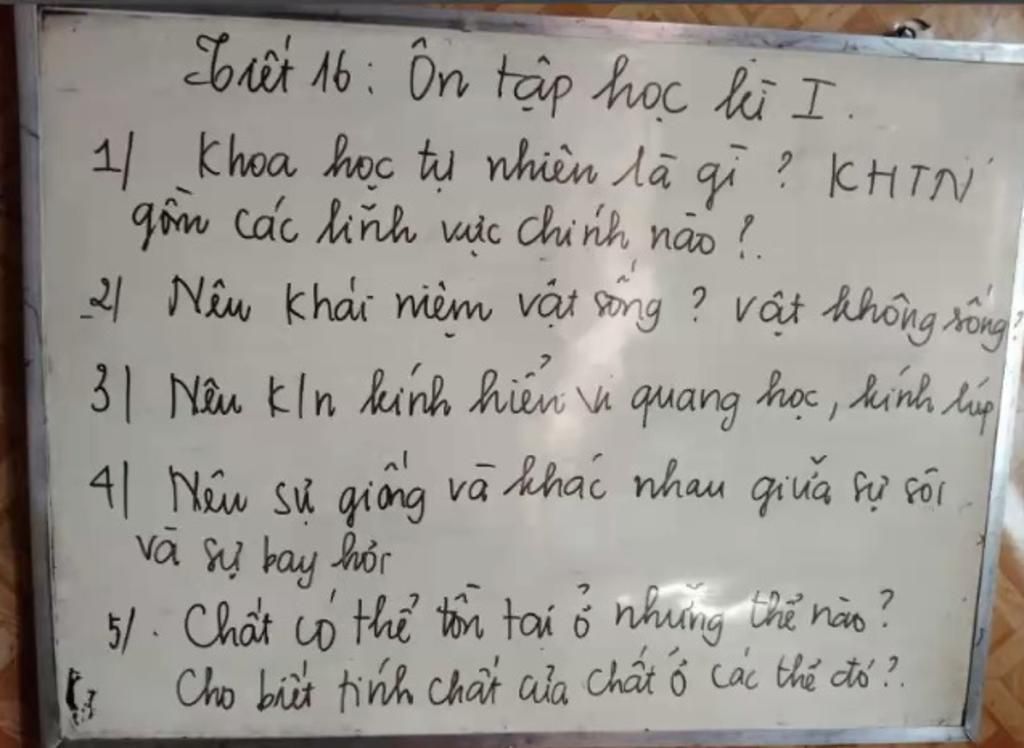 Tiết 16: Ôn tập học kì I.
1/ Khoa học tự nhiên là gì? KHTN
gồm các lĩnh vực chính nào?
2/ Nêu khái niệm vật sống? vật không sống?
3/ Nêu k/n kính hiển vi quang học, kính lúp
4/ Nêu sự giống và khác nhau giữa sự sôi
và sự bay hơi
5/. Chất có thể tồn tại ở những thể nào?
Cho biết tính chất của chất ở các thể đó?.